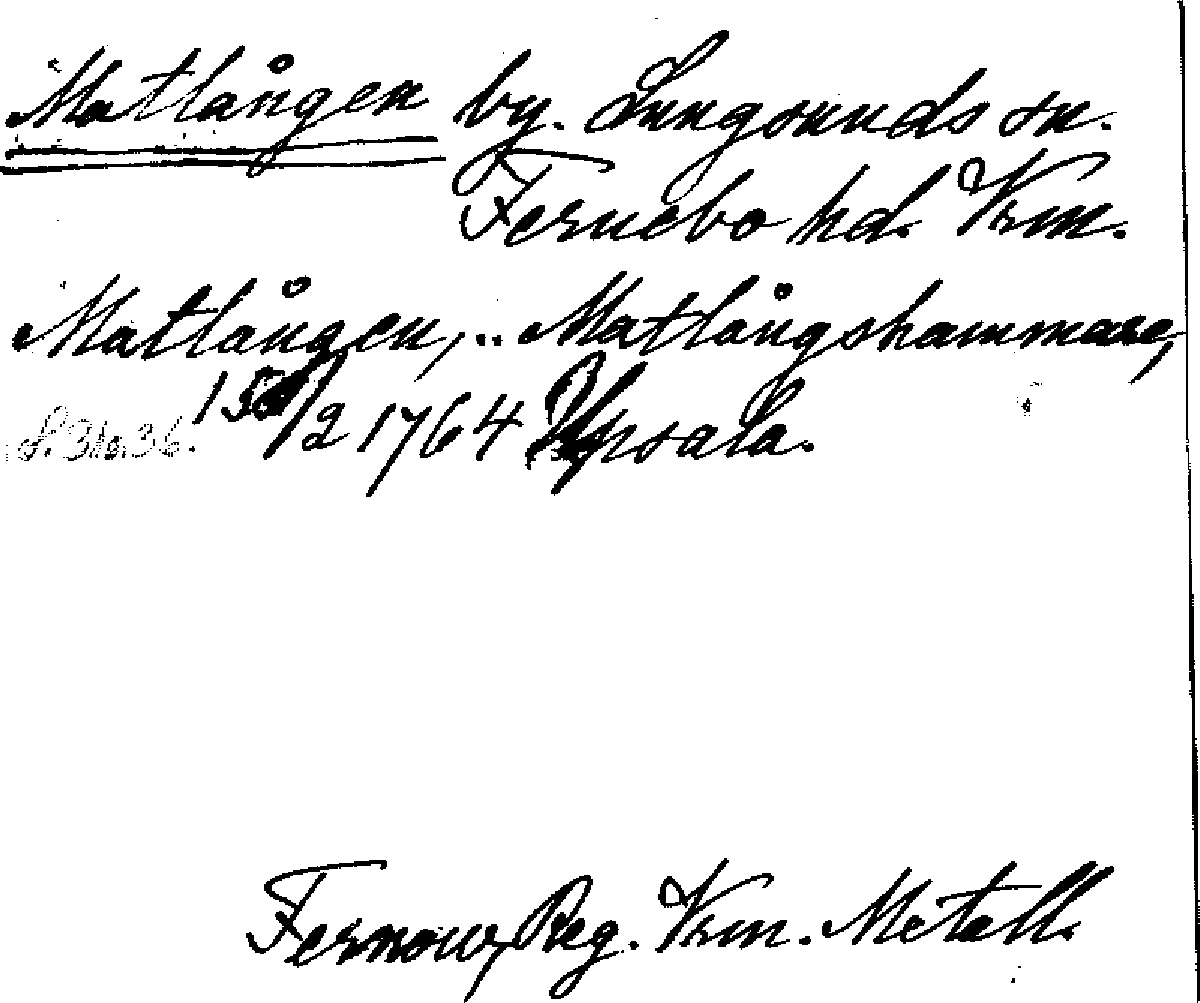 Matlången by. Lungsunds sn.
Fernebo hd. Vrm.
Matlången, .. Matlångshammare,
/2 1764 Upsala.
Fernow, Reg. Vrm. Metall.